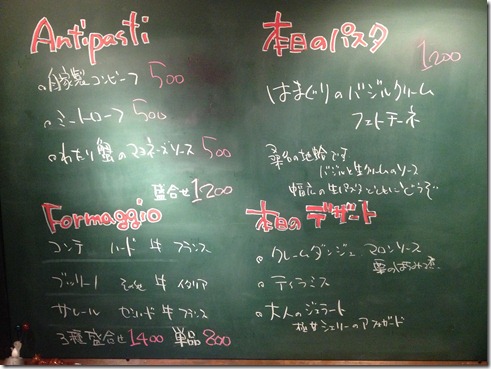 Antipasti
自家製コンビーフ 500
ミートローフ 500
わたり蟹のマヨネーズソース 500
盛合せ 1200
Formaggio
コンテ ハード 牛 フランス
ブッリーノ その他 牛 イタリア
サレール セミハード 牛 フランス
3種盛合せ 1400 単品 800
本日のパスタ
1200
はまぐりのバジルクリーム
フェトチーネ
桑名の地蛤です
バジルと生クリームのソース
幅広の生パスタとともにどうぞ
本日のデザート
クレームダンジュ マロンソース
栗の
ティラミス
大人のジェラート
極甘シェリーのアフォガード